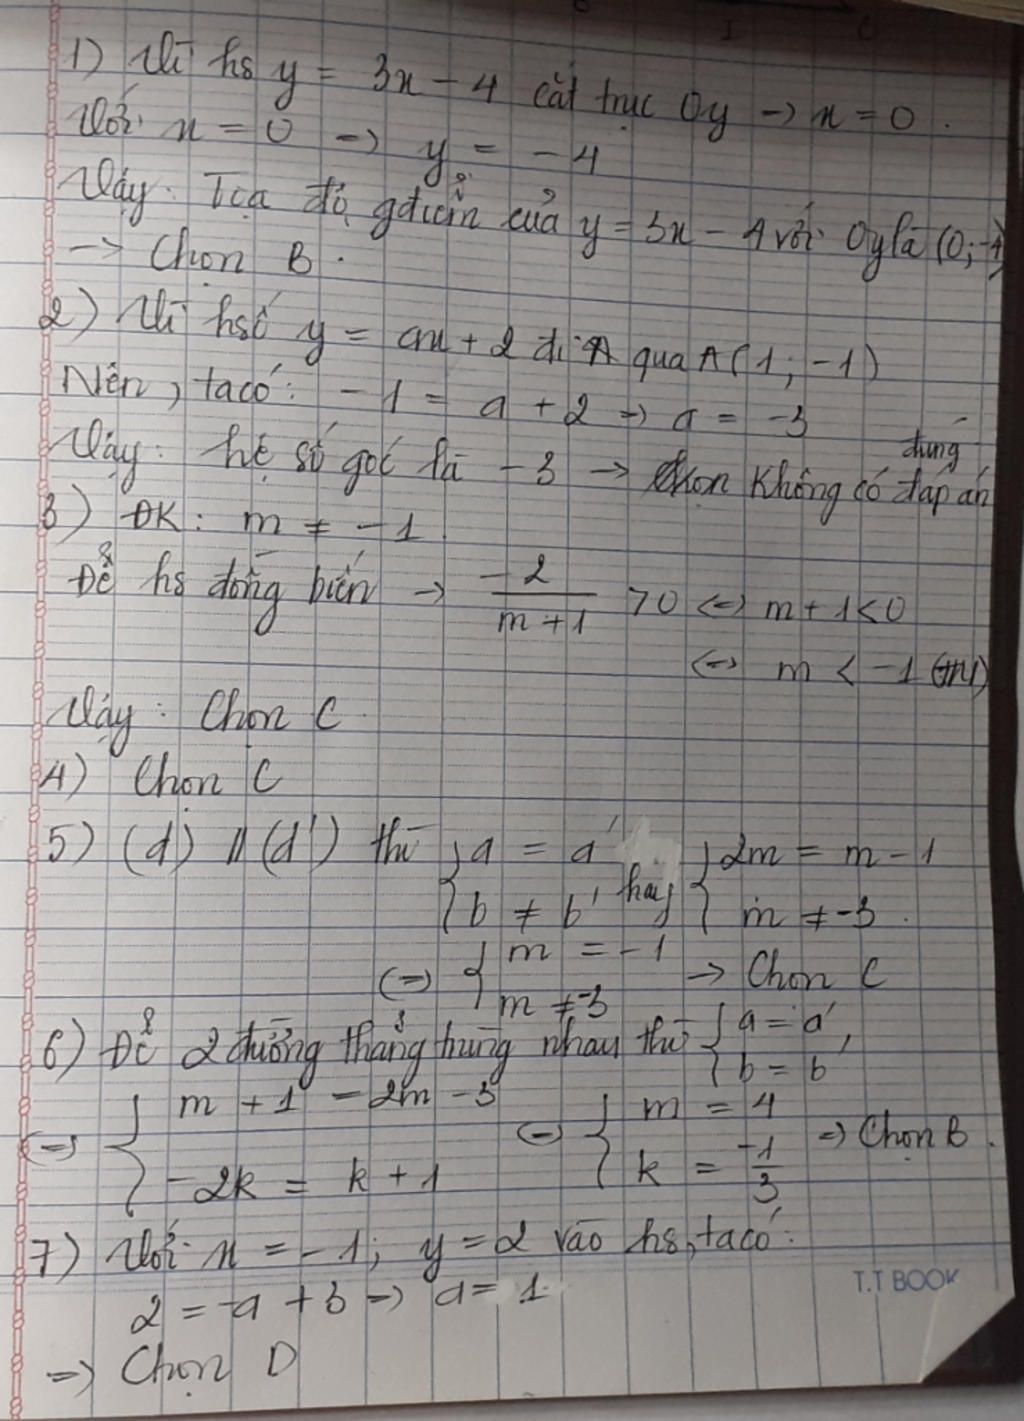 1) Vì hs y = 3x - 4 cắt trục Oy -> x = 0.
Với x = 0 -> y = -4
Vậy: Tọa độ gđiểm của y = 3x - 4 với Oy là (0; -4)
-> Chọn B.
2) Vì hsố y = ax + 2 đi qua A(1; -1)
Nên, ta có: -1 = a + 2 => a = -3
Vậy: hệ số góc là -3 -> Không có đáp án đúng
3) ĐK: m ≠ -1
Để hs đồng biến -> \frac{-2}{m+1} > 0 <=> m + 1 < 0
<=> m < -1 (TM)
Vậy: Chọn C.
4) Chọn C
5) (d) // (d') thì { a = a' ; b ≠ b' hay { 2m = m - 1 ; m ≠ -3.
<=> { m = -1 ; m ≠ -3 -> Chọn C
6) Để 2 đường thẳng trùng nhau thì { a = a' ; b = b'
<=> { m + 1 = 2m - 3 ; -2k = k + 1 <=> { m = 4 ; k = \frac{-1}{3} => Chọn B.
7) Với x = -1; y = 2 vào hs, ta có:
2 = -a + 3 => a = 1.
=> Chọn D
T.T BOOK